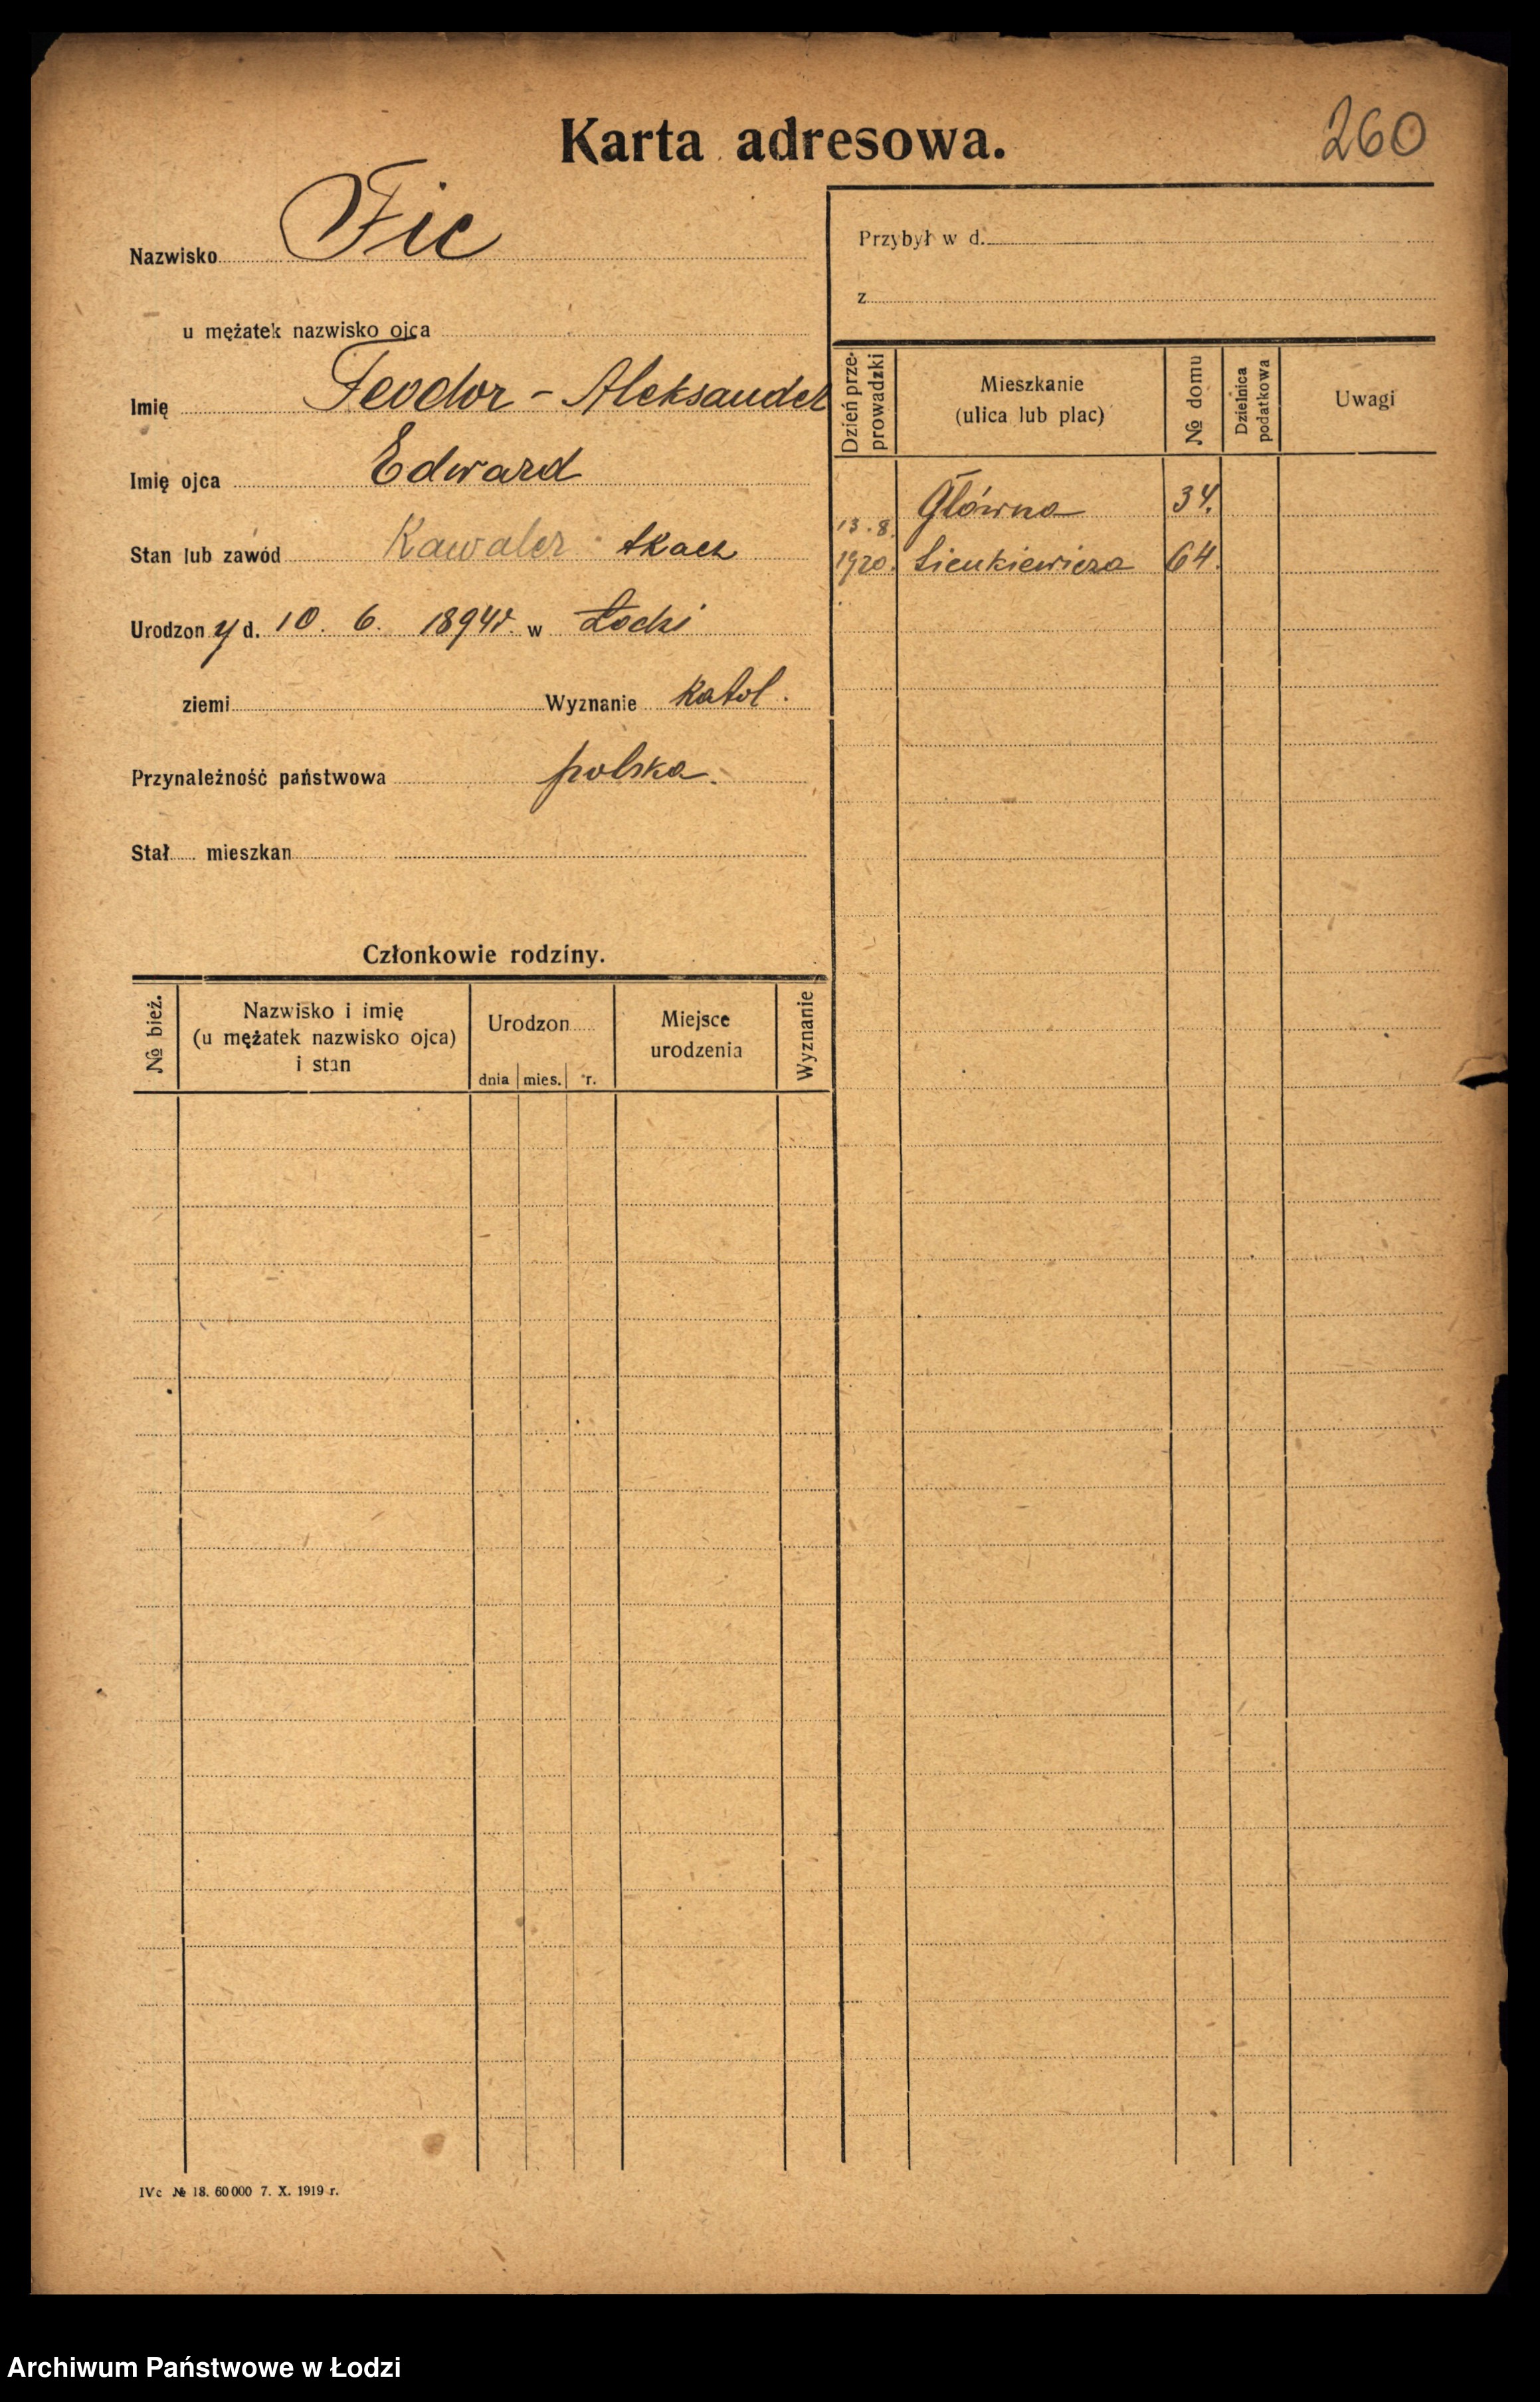 Karta adresowa.
260
Nazwisko Fic
u mężatek nazwisko ojca
Imię Teodor - Aleksander
Imię ojca Edward
Stan lub zawód Kawaler tkacz
Urodzony d. 10. 6. 1894 r. w Łodzi
ziemi Wyznanie katol.
Przynależność państwowa polska.
Stał mieszkan
Przybył w d.
z
Dzień przeprowadzki
Mieszkanie
(ulica lub plac)
№ domu
Dzielnica podatkowa
Uwagi
Główna 34.
13.8.
1920. Sienkiewicza 64.
Członkowie rodziny.
№ bież.
Nazwisko i imię
(u mężatek nazwisko ojca)
i stan
Urodzon
dnia mies. r.
Miejsce
urodzenia
Wyznanie
IVc № 18. 60000 7. X. 1919 r.
Archiwum Państwowe w Łodzi